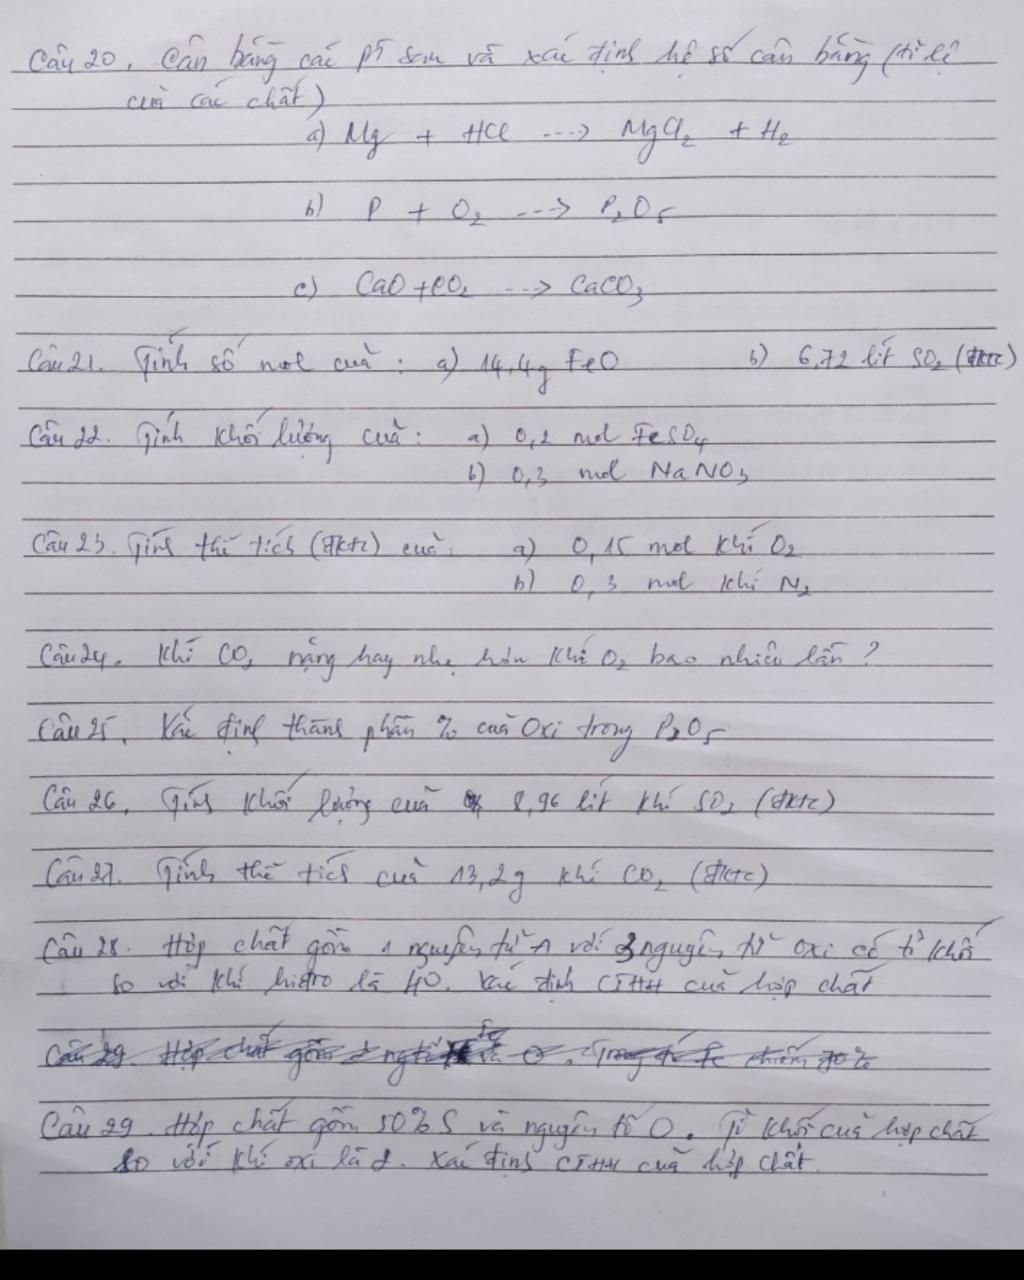 Câu 20. Cân bằng các pt sau và xác định hệ số cân bằng (tỉ lệ
của các chất)
a) Mg + HCl ---> MgCl₂ + H₂
b) P + O₂ ---> P₂O₅
c) CaO + CO₂ ---> CaCO₃
Câu 21. Tính số mol của : a) 14,4g FeO b) 6,72 lít SO₂ (đktc)
Câu 22. Tính khối lượng của : a) 0,2 mol FeSO₄
b) 0,3 mol NaNO₃
Câu 23. Tính thể tích (đktc) của : a) 0,15 mol khí O₂
b) 0,3 mol khí N₂
Câu 24. Khí CO₂ nặng hay nhẹ hơn khí O₂ bao nhiêu lần ?
Câu 25. Xác định thành phần % của Oxi trong P₂O₅
Câu 26. Tính khối lượng của 8,96 lít khí SO₂ (đktc)
Câu 27. Tính thể tích của 13,2g khí CO₂ (đktc)
Câu 28. Hợp chất gồm 1 nguyên tử A với 3 nguyên tử oxi có tỉ khối
so với khí hiđro là 40. Xác định CTHH của hợp chất
Câu 29. Hợp chất gồm 2 Fe và O. Trong đó Fe chiếm 70%
Câu 29. Hợp chất gồm 50% S và nguyên tố O. Tỉ khối của hợp chất
so với khí oxi là 2. Xác định CTHH của hợp chất.